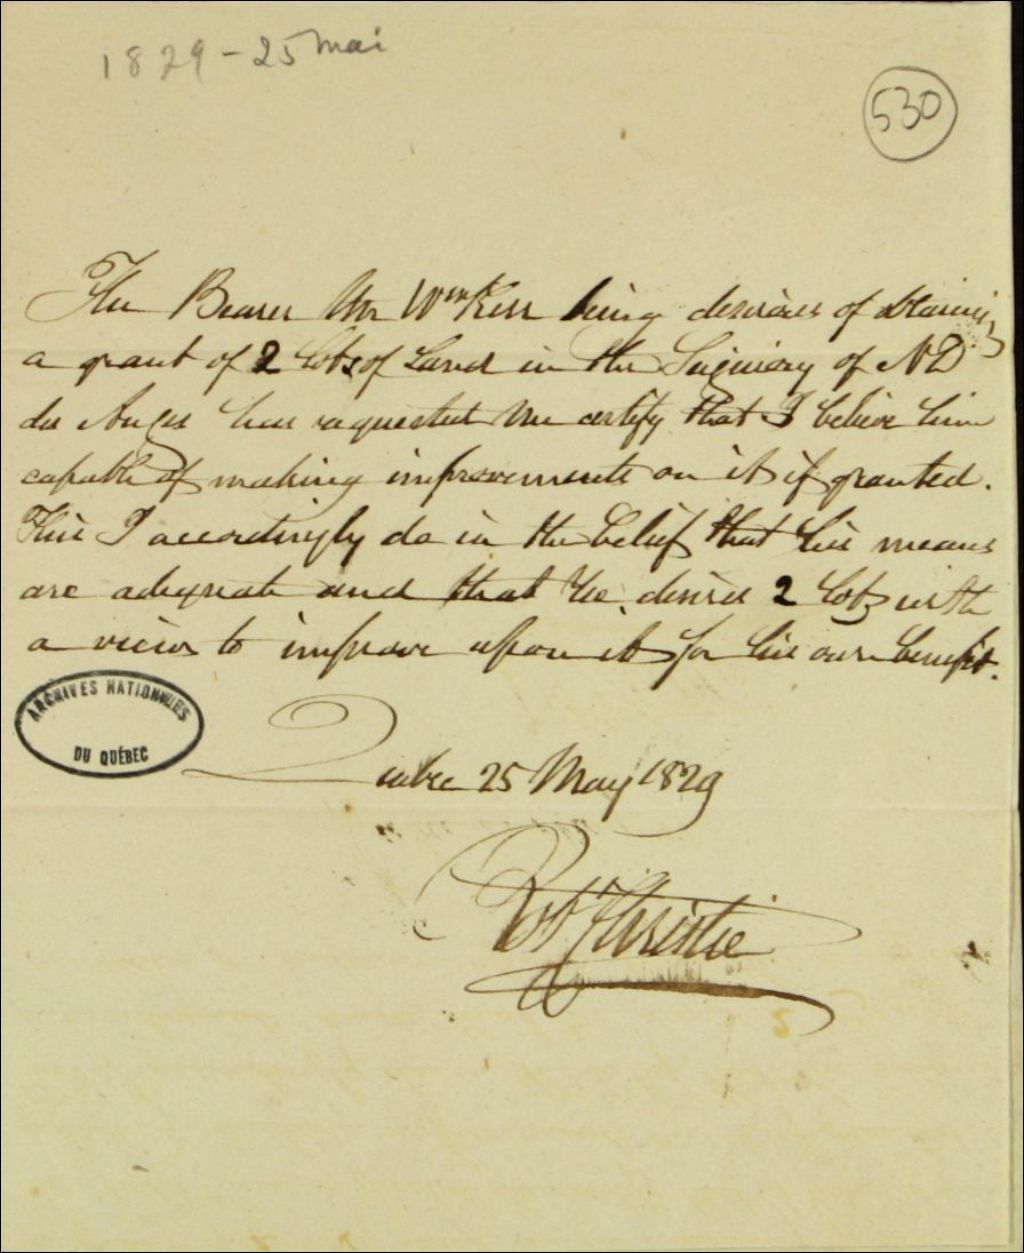 1829 - 25 Mai
530
The Bearer Mr Wm Kerr being desirous of obtaining
a grant of 2 Lots of Land in the Seigniory of N D
des Anges has requested me certify that I believe him
capable of making improvements on it if granted.
This I accordingly do in the belief that his means
are adequate and that he desires 2 Lots with
a view to improve upon it for his own benefit.
ARCHIVES NATIONALES
DU QUÉBEC
Quebec 25 May 1829
Robt Christie